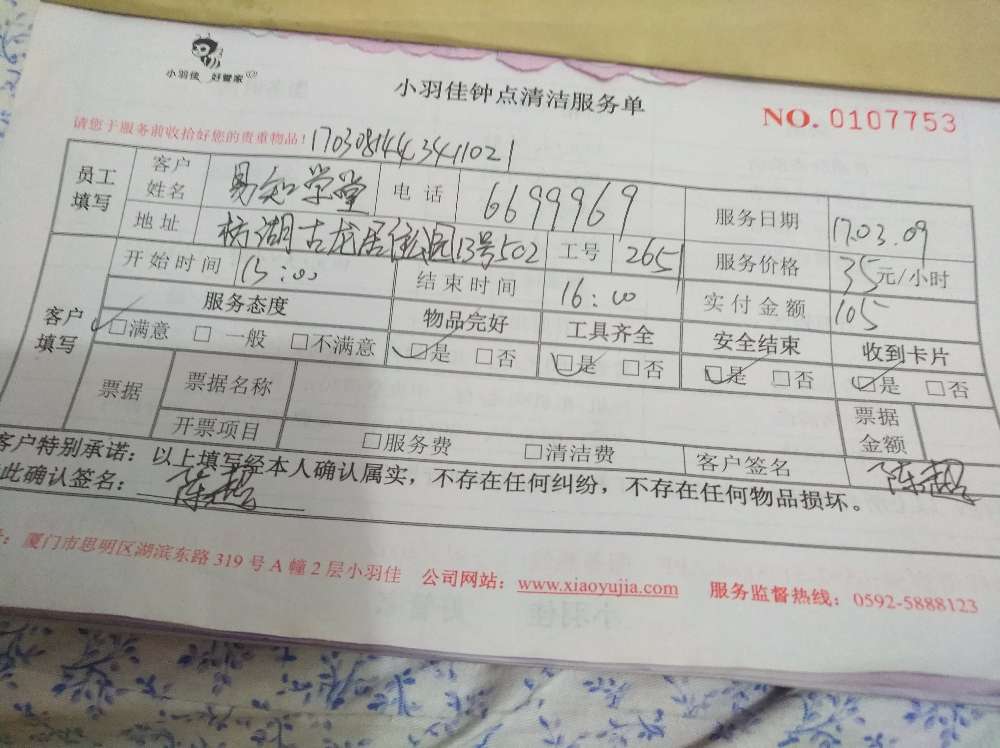 小羽佳 好管家
小羽佳钟点清洁服务单
NO. 0107753
请您于服务前收拾好您的贵重物品! 1703081443411021
员工填写 客户姓名 易知学堂 电话 6699969 服务日期 17.03.09
地址 湖古龙居住园13号502 工号 2651 服务价格 35元/小时
客户填写 开始时间 13:00 结束时间 16:00 实付金额 105
服务态度 物品完好 工具齐全 安全结束 收到卡片
□满意 □一般 □不满意 □是 □否 □是 □否 □是 □否 □是 □否
票据 票据名称 票据金额
开票项目 □服务费 □清洁费 客户签名 陈超
客户特别承诺:以上填写经本人确认属实,不存在任何纠纷,不存在任何物品损坏。
此确认签名: 陈超
厦门市思明区湖滨东路 319 号 A 幢 2 层小羽佳 公司网站: www.xiaoyujia.com 服务监督热线: 0592-5888123